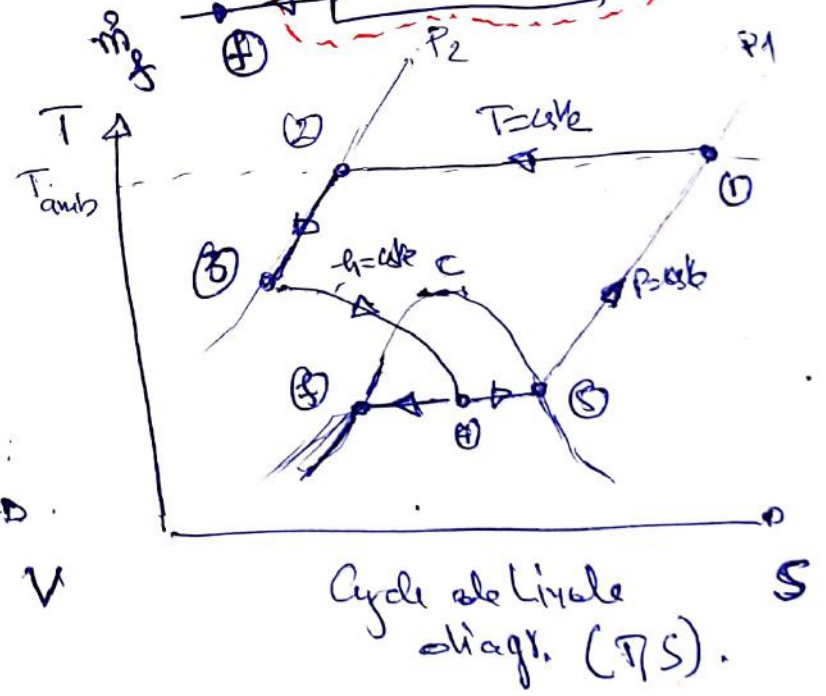 ṁf
f
P2
P1
T
2
T=cste
Tamb
1
3
h=cste
C
P=cste
f
4
5
V
S
Cycle de Linde
diagr. (T,S).